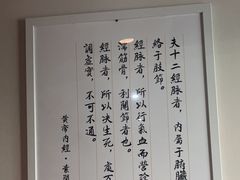 夫十二經脈者，內屬于腑臟，
絡于肢節。
經脈者，所以行氣血而營陰
濡筋骨，利關節者也。
經脈者，所以决生死，處百
調虛實，不可不通。
黃帝內經·靈樞